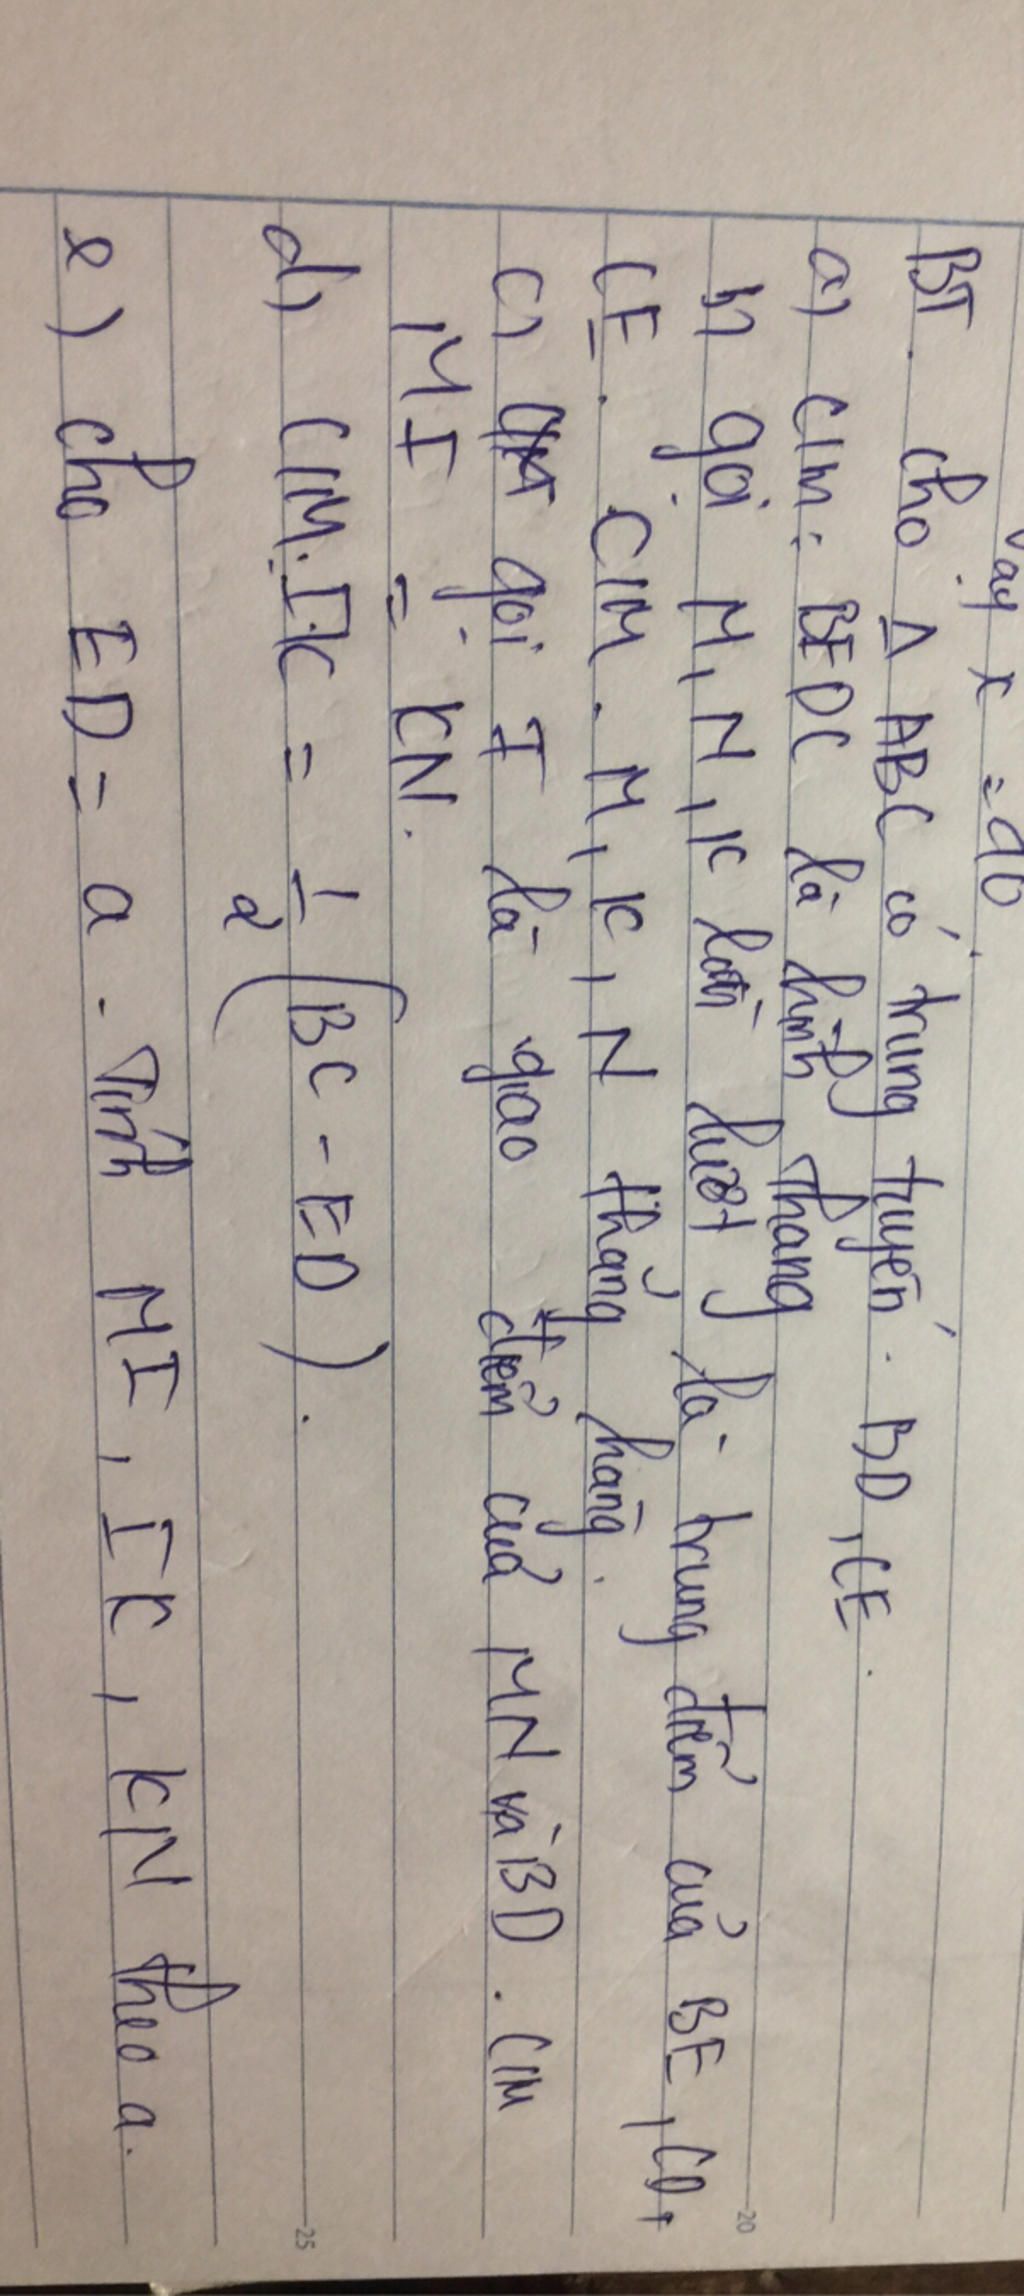 Vậy x = 90
BT. Cho Δ ABC có trung tuyến. BD, CE.
a) CIM: BEDC là hình thang
b) gọi M, N, K lần lượt là trung điểm của BE, CD,
CE. CIM. M, K, N thẳng hàng.
c) gọi I là giao điểm của MN và BD. CIM
MI = KN.
d) CIM. IK = 1/2 (BC - ED).
e) Cho ED = a. Tính MI, IK, KN theo a.
20
25